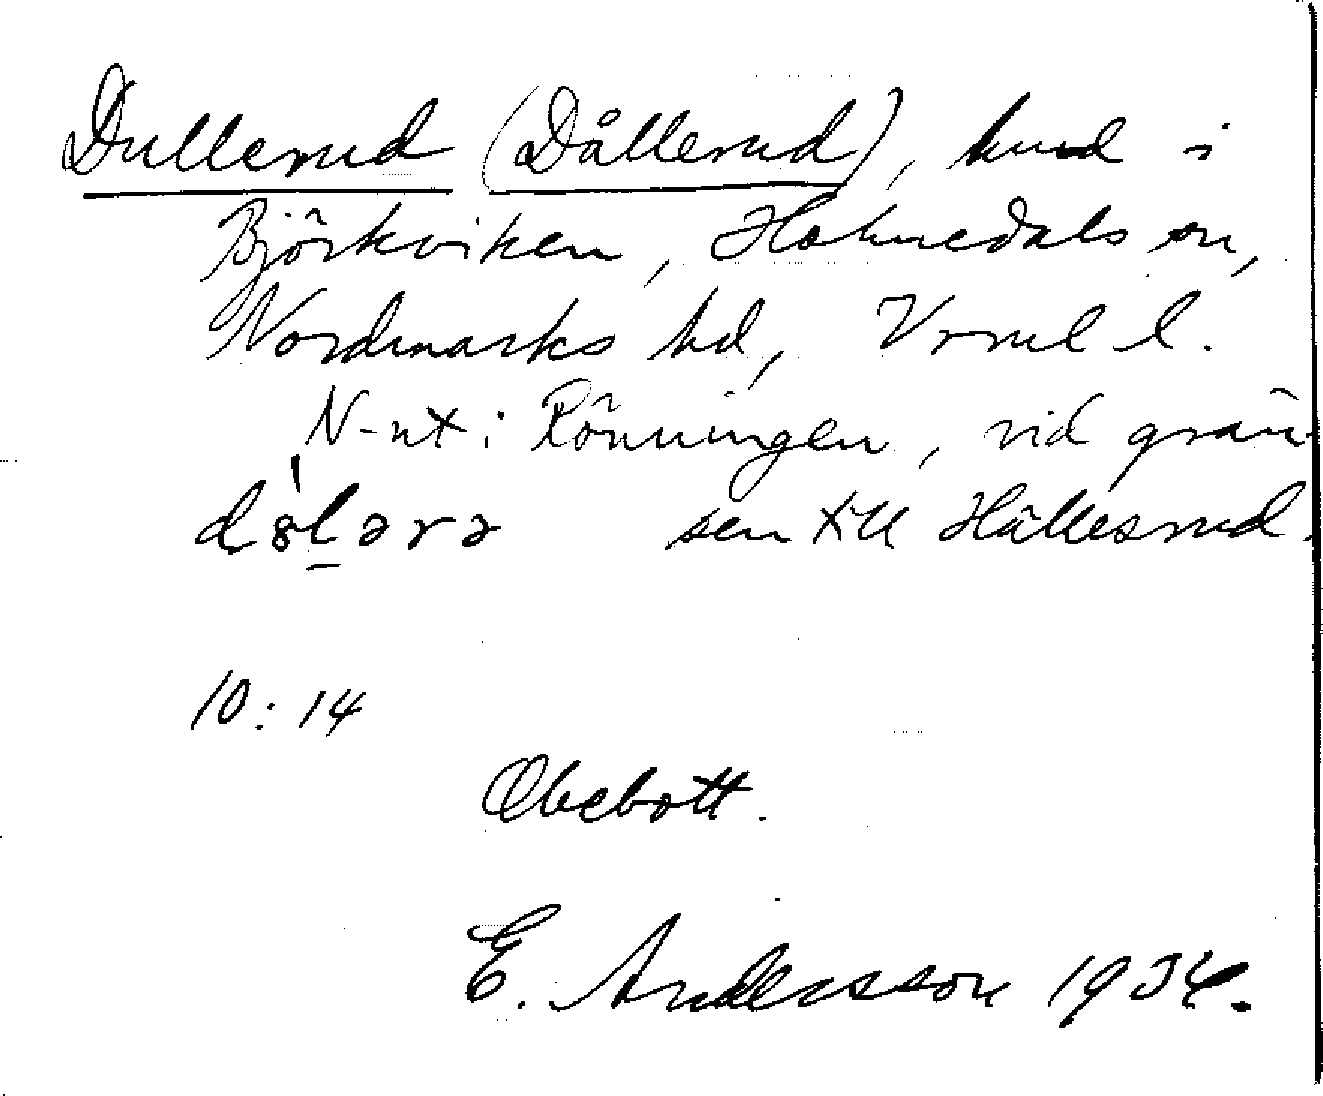 Dullerud (Dållerud), hmd i
Björkviken, Holmedals sn,
Nordmarks hd, Vrml l.
N-ut i Rönningen, vid grän-
sen till Hällesrud.
10:14
Obebott.
E. Andersson 1934.